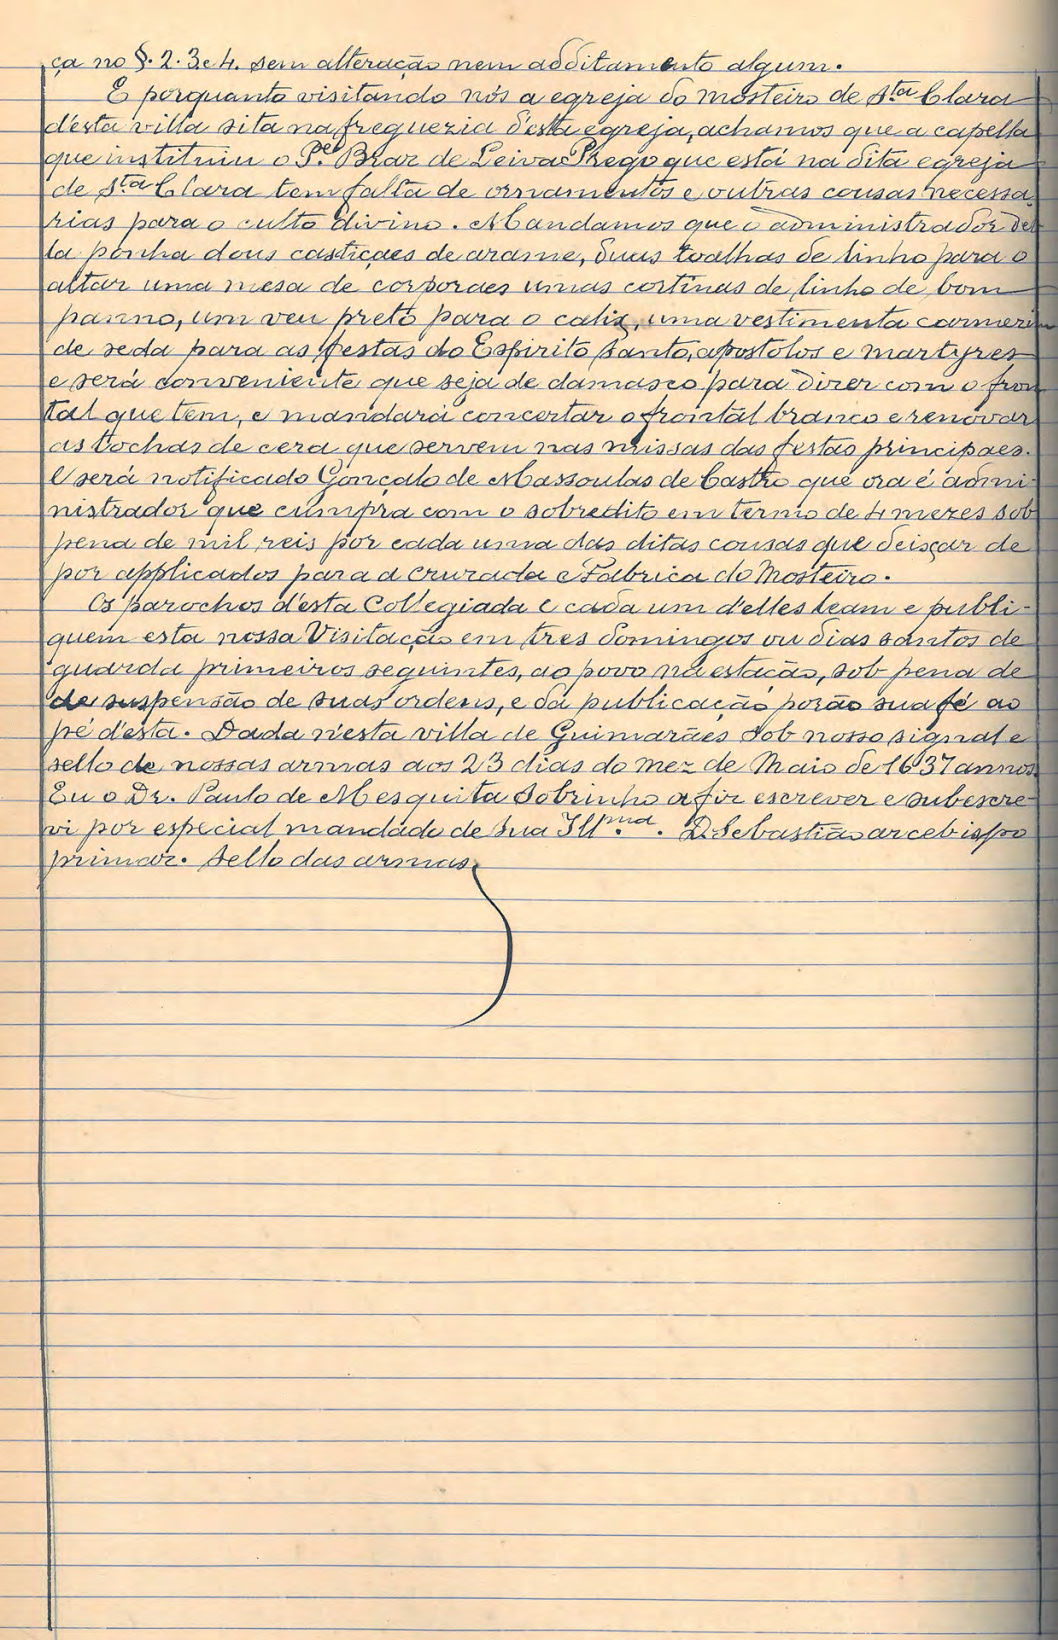 ça no §. 2. 3. e 4. sem alteração nem additamento algum.
E porquanto visitando nós a egreja do mosteiro de S.ta Clara
d'esta villa sita na freguezia d'esta egreja, achamos que a capella
que instituiu o P.e Braz de Leiva Prego que está na dita egreja
de S.ta Clara tem falta de ornamentos e outras cousas necessa-
rias para o culto divino. Mandamos que o administrador del-
la ponha dous castiçaes de arame, duas toalhas de linho para o
altar uma mesa de corporaes umas cortinas de linho de bom
panno, um veu preto para o calix, uma vestimenta carmezim
de seda para as festas do Espirito Santo, apostolos e martyres
e será conveniente que seja de damasco para dizer com o fron
tal que tem, e mandará concertar o frontal branco e renovar
as tochas de cera que servem nas missas das festas principaes.
E será notificado Gonçalo de Massoulas de Castro que ora é admi-
nistrador que cumpra com o sobredito em termo de 4 mezes sob
pena de mil reis por cada uma das ditas cousas que deixar de
por applicados para a cruzada e Fabrica do Mosteiro.
Os parochos d'esta Collegiada e cada um d'elles leam e publi-
quem esta nossa Visitação em tres domingos ou dias santos de
guarda primeiros seguintes, ao povo na estação, sob pena de
de suspensão de suas ordens, e da publicação porão sua fé ao
pé d'esta. Dada n'esta villa de Guimarães sob nosso signal e
sello de nossas armas aos 23 dias do mez de Maio de 1637 annos.
Eu o Dr. Paulo de Mesquita Sobrinho a fiz escrever e subescre-
vi por especial mandado de sua Ill.ma. D. Sebastião arcebispo
primaz. Sello das armas.